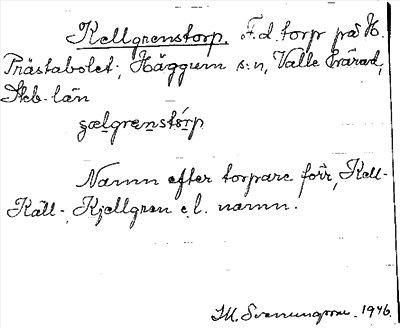 Kellgrenstorp. F.d. torp på H.
Prästabolet, Häggum s:n, Valle härad,
Skb. län
gælgrenstórp
Namn efter torpare förr, Kell-
Käll-, Kjellgren e.l. namn.
1946.